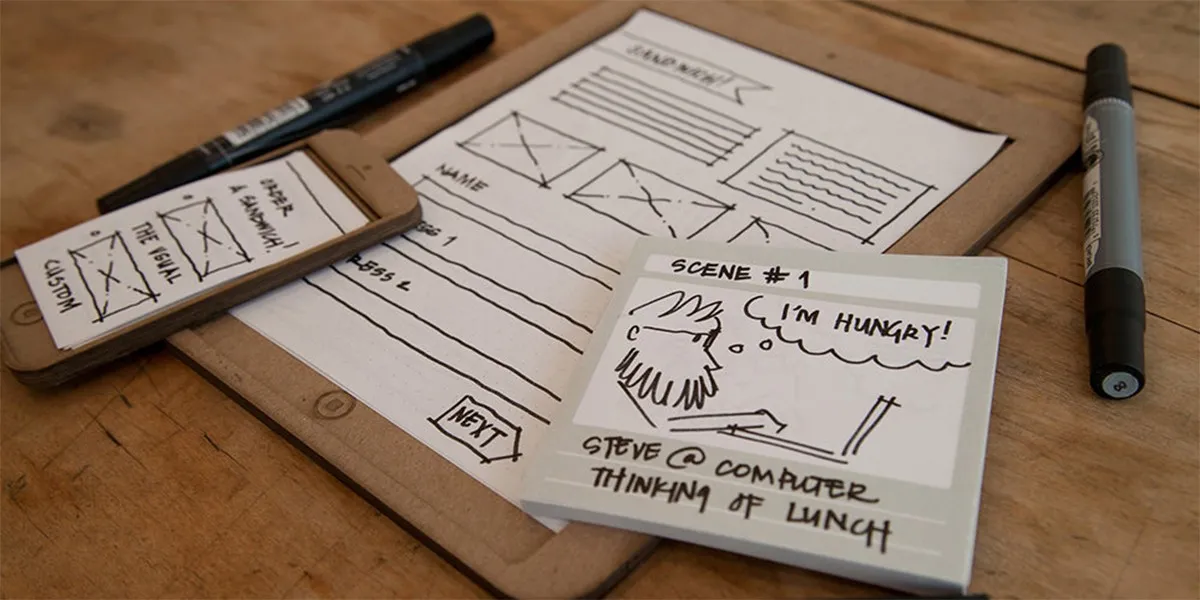 SANDWICH!
NAME
ESS 1
RESS 2
NEXT
ORDER
A SANDWICH!
THE USUAL
CUSTOM
SCENE # 1
I'M HUNGRY!
STEVE @ COMPUTER
THINKING OF LUNCH
8